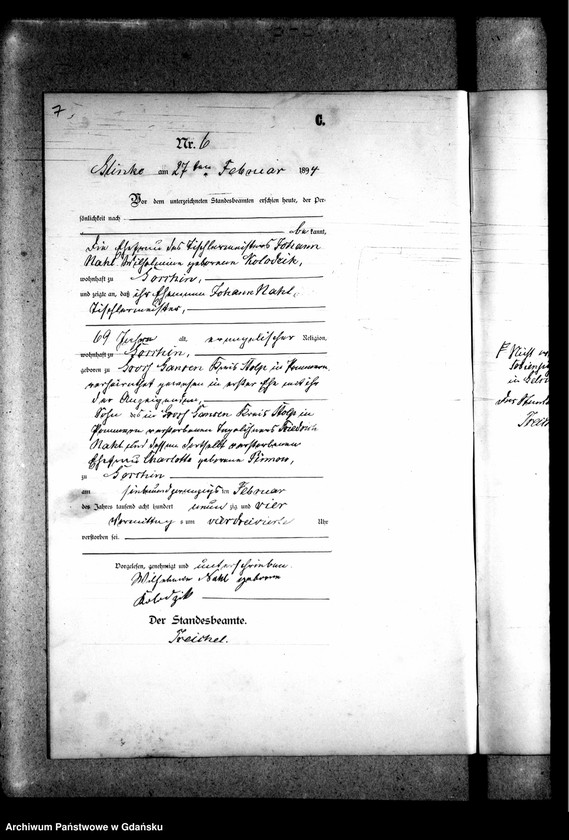 7,
C.
Nr. 6
Glinke am 27ten Februar 1894
Vor dem unterzeichneten Standesbeamten erschien heute, der Per-
sönlichkeit nach
be kannt,
die Ehefrau des Tischlermeisters Johann
Nahl, Wilhelmine geborene Kolodzik,
wohnhaft zu Gorrhin,
und zeigte an, daß ihr Ehemann Johann Nahl,
Tischlermeister,
69 Jahre alt, evangelischer Religion,
wohnhaft zu Gorrhin,
geboren zu Groß Gansen Kreis Stolp in Pommern
verheirathet gewesen in erster Ehe mit ihr
der Anzeigenden,
Sohn des in Groß Gansen Kreis Stolp in
Pommern verstorbenen Tagelöhners Friedrich
Nahl und dessen daselbst verstorbenen
Ehefrau Charlotte geborene
zu Gorrhin
am siebenundzwanzigsten Februar
des Jahres tausend acht hundert neun zig und vier
Vormittag s um vierdreiviertel Uhr
verstorben sei.
Vorgelesen, genehmigt und unterschrieben.
Wilhelmine Nahl geborene
Kolodzik
Der Standesbeamte.
Treichel.
in
Archiwum Państwowe w Gdańsku